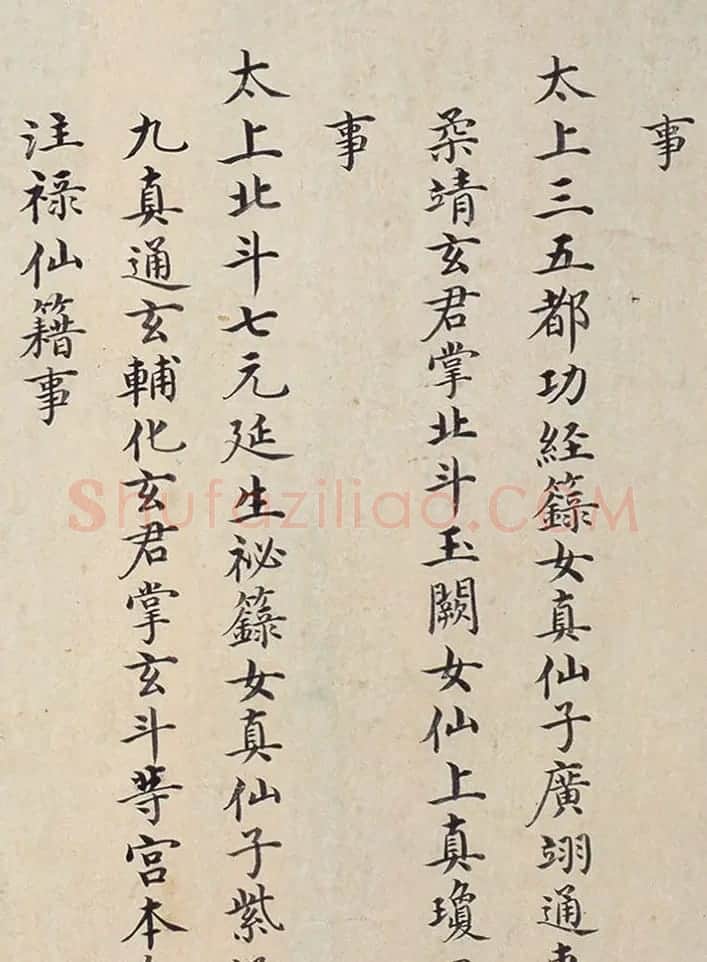 事
太上三五都功經籙女真仙子廣翊通
柔靖玄君掌北斗玉闕女仙上真瓊
事
太上北斗七元延生祕籙女真仙子紫
九真通玄輔化玄君掌玄斗等宫本
注禄仙籍事
Shufaziliao.COM